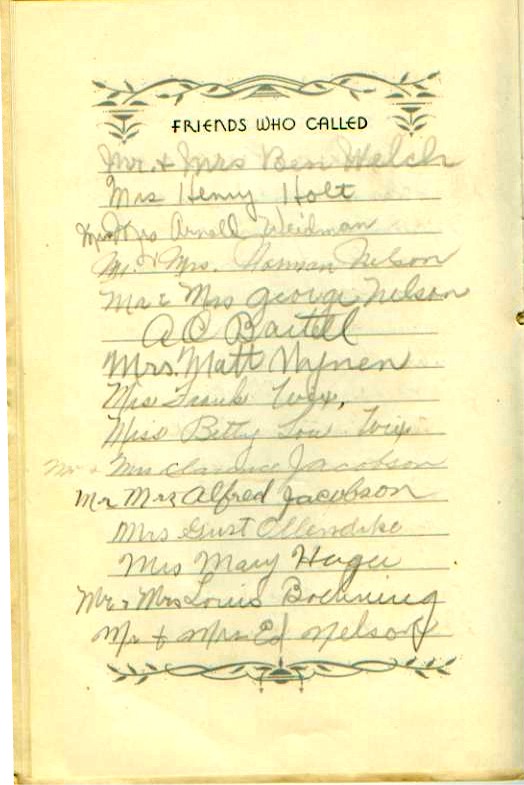 FRIENDS WHO CALLED
Mr. & Mrs Ben Welch
Mrs Henry Holt
Mr & Mrs Arnold Weidman
Mr. & Mrs. Norman Nelson
Mr & Mrs George Nelson
A C Bartell
Mrs. Matt Nynen
Mrs Frank Wix.
Miss Betty Lou Wix
Mr & Mrs Clarence Jacobson
Mr Mrs Alfred Jacobson
Mrs Gust Ollendike
Mrs Mary Hager
Mr & Mrs Louis Boehning
Mr & Mrs Ed Nelson